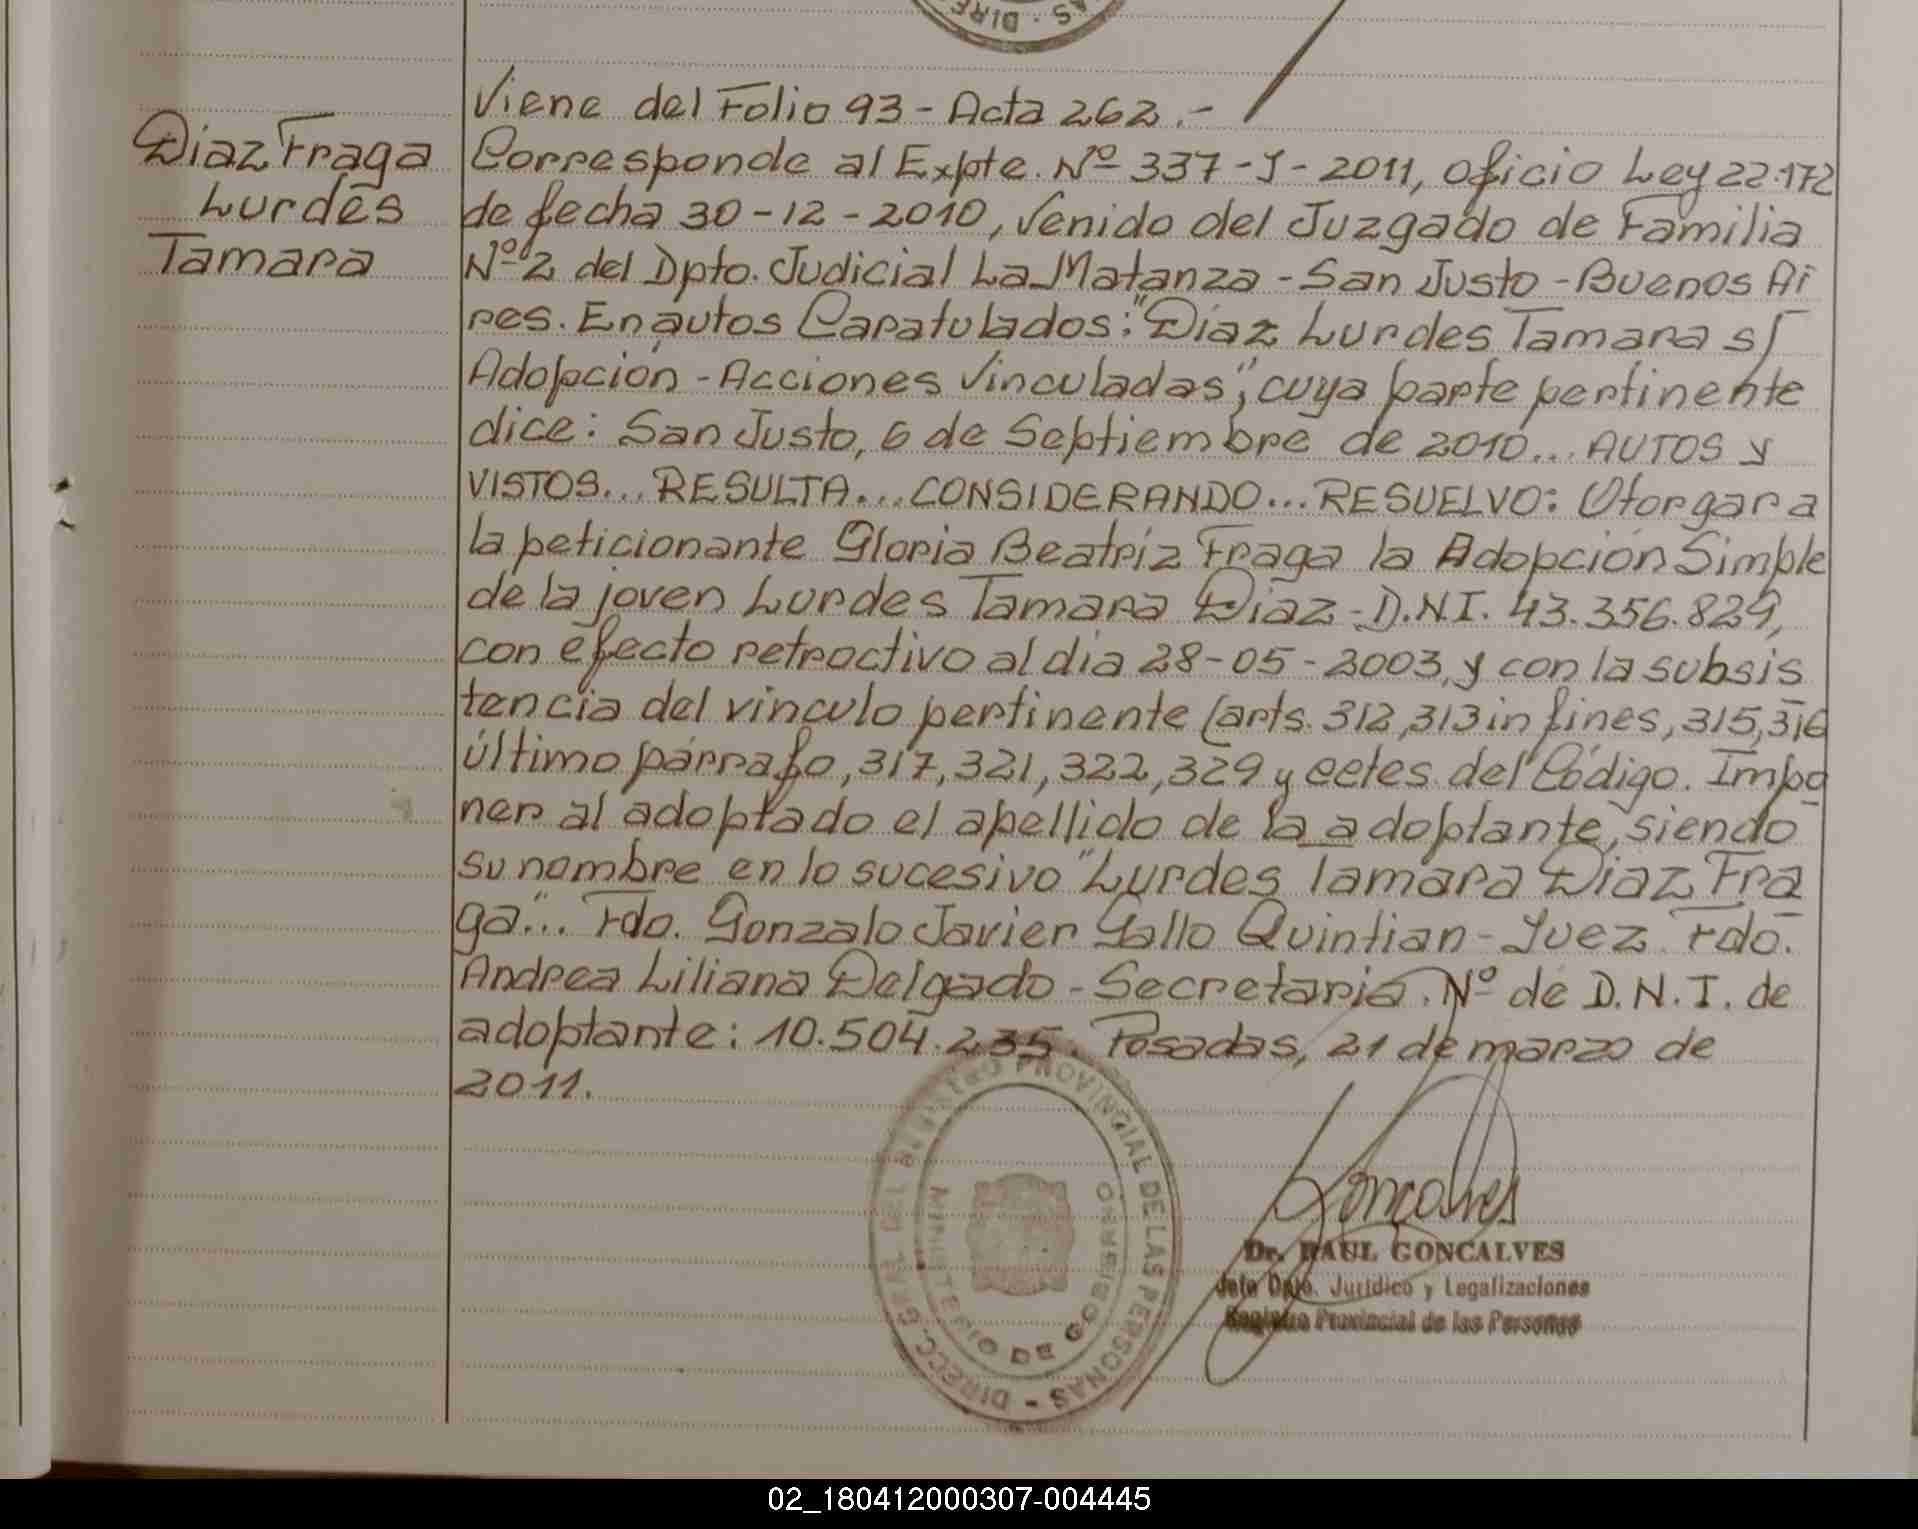 DIRE · S
Viene del Folio 93 - Acta 262.-
Diaz Fraga
Lurdes
Tamara
Corresponde al Expte. Nº 337-J-2011, oficio Ley 22.172
de fecha 30-12-2010, venido del Juzgado de Familia
Nº 2 del Dpto. Judicial La Matanza - San Justo - Buenos Ai
res. En autos Caratulados: "Diaz Lurdes Tamara s/
Adopción - Acciones Vinculadas", cuya parte pertinente
dice: San Justo, 6 de Septiembre de 2010... AUTOS y
VISTOS... RESULTA... CONSIDERANDO... RESUELVO: Otorgar a
la peticionante Gloria Beatriz Fraga la Adopción Simple
de la joven Lurdes Tamara Diaz - D.N.I. 43.356.829,
con efecto retroctivo al dia 28-05-2003, y con la subsis
tencia del vinculo pertinente (arts. 312, 313 in fines, 315, 316
último párrafo, 317, 321, 322, 329 y cctes. del Código. Impo
ner al adoptado el apellido de la adoptante, siendo
su nombre en lo sucesivo "Lurdes Tamara Diaz Fra
ga"... Fdo. Gonzalo Javier Gallo Quintian - Juez. Fdo.
Andrea Liliana Delgado - Secretaria. Nº de D.N.I. de
adoptante: 10.504.235. Posadas, 21 de marzo de
2011.
DIRECC. GRAL. DEL REGISTRO PROVINCIAL DE LAS PERSONAS -
MINISTERIO DE GOBIERNO
Goncalves
Dr. RAUL GONCALVES
Jefe Dpto. Jurídico y Legalizaciones
Registro Provincial de las Personas
02_180412000307-004445